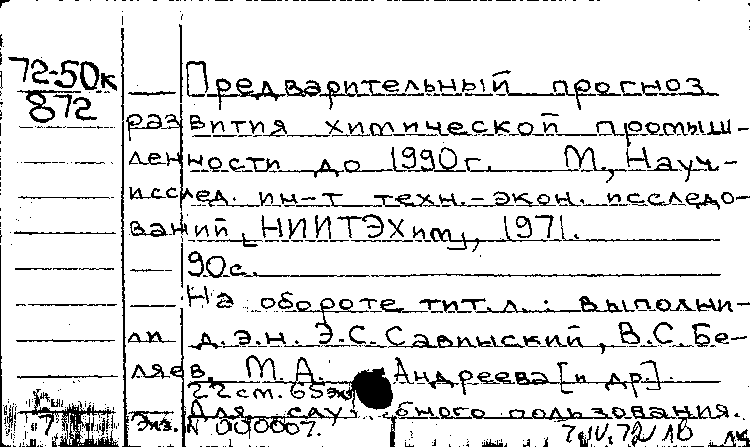 72-50к
872
Предварительный прогноз
развития химической промыш-
ленности до 1990г. М., Науч-
исслед. ин-т техн.-экон. исследо-
ваний „НИИТЭХим", 1971.
90с.
На обороте тит.л.: выполни-
ли д.э.н. Э.С. Савинский, В.С. Бе-
ляев, М.А. Андреева [и др.].
22см. 65экз
Для служебного пользования.
7 Экз. N 000007.